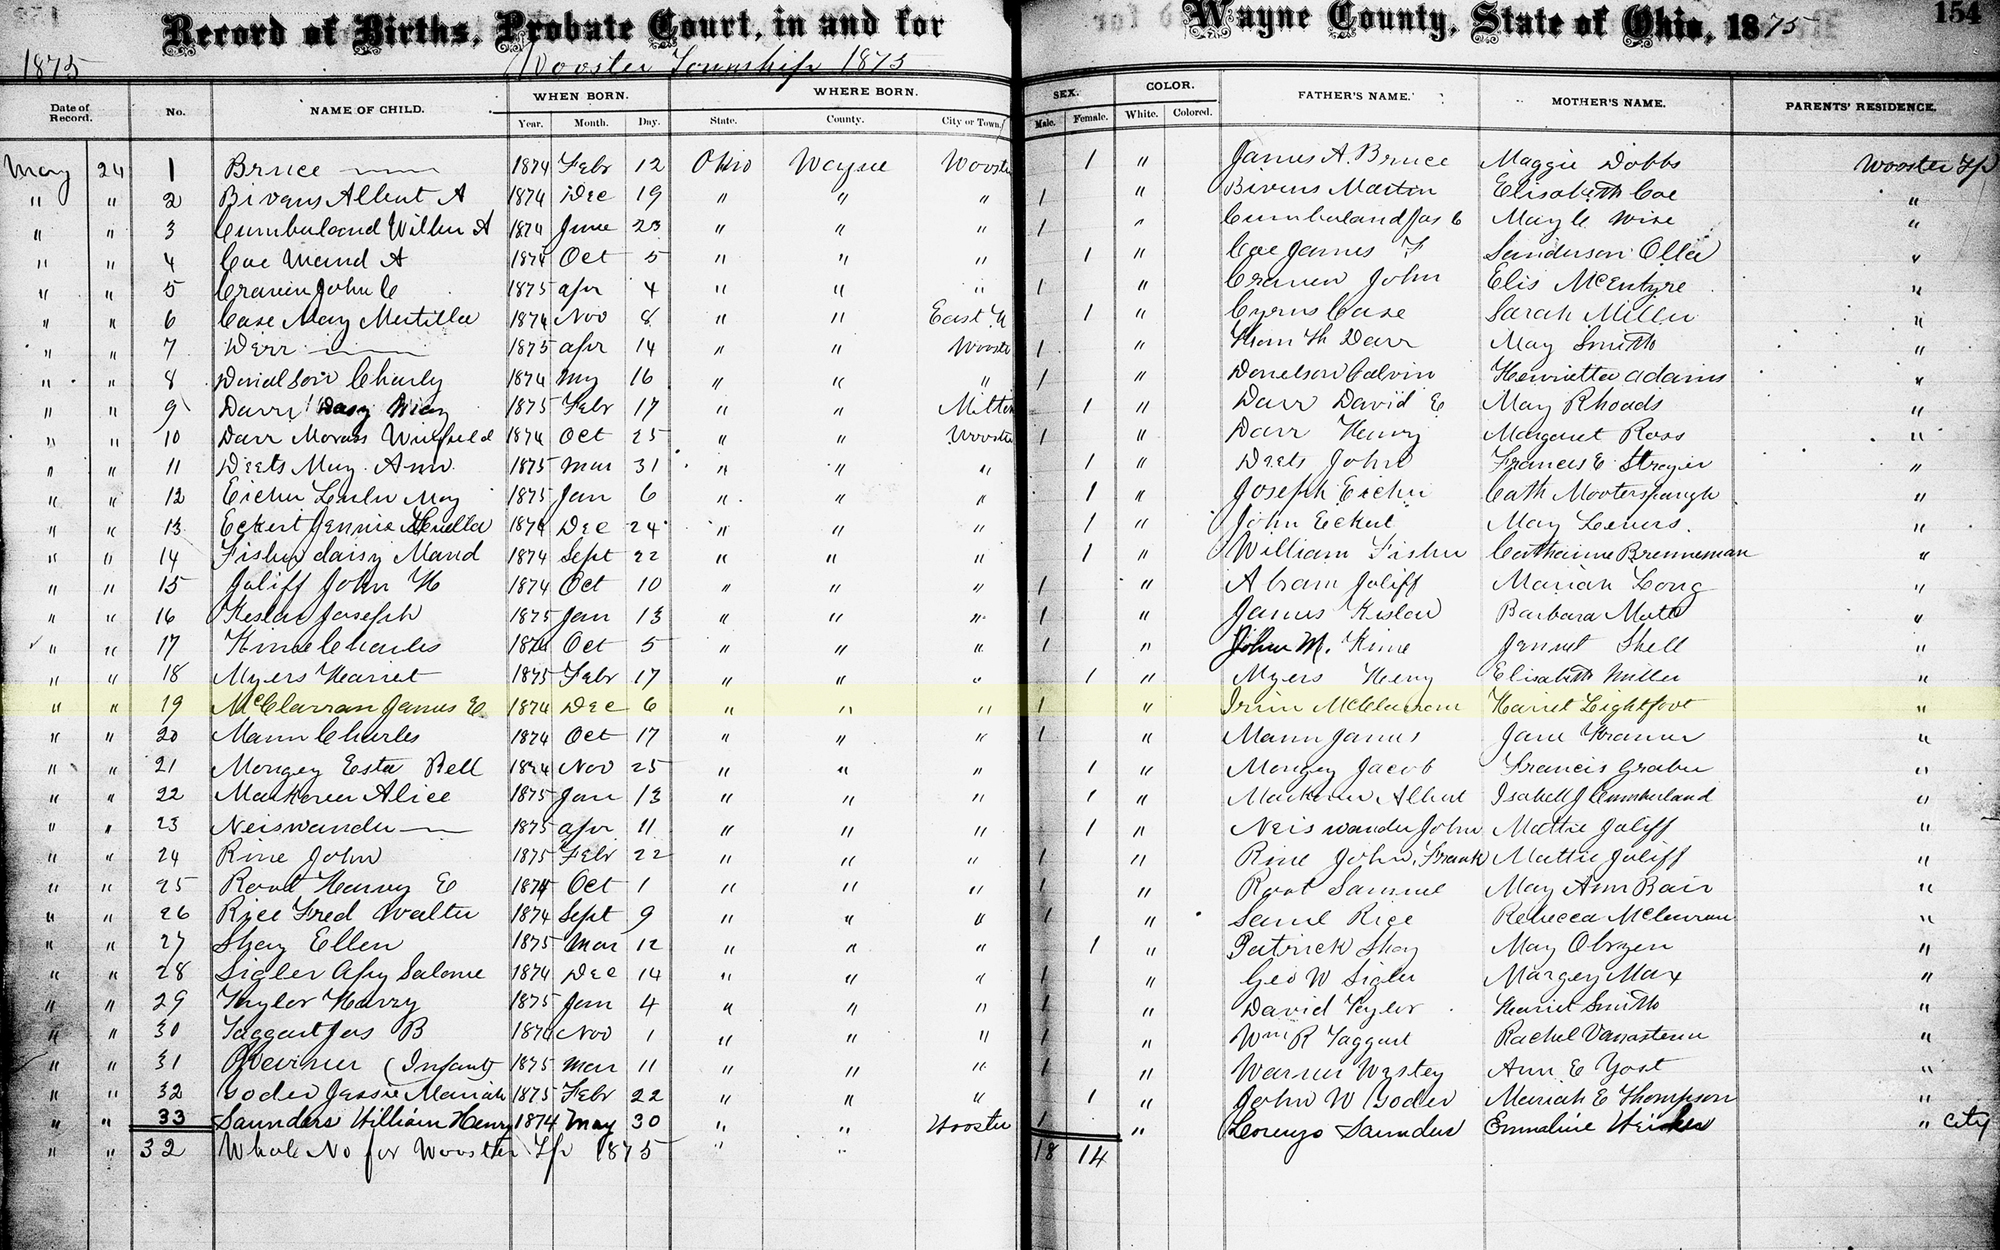 Record of Births, Probate Court, in and for Wayne County, State of Ohio, 1875 154
1875 Wooster Township 1875
Date of Record. No. NAME OF CHILD. WHEN BORN. WHERE BORN. SEX. COLOR. FATHER'S NAME. MOTHER'S NAME. PARENTS' RESIDENCE.
Year. Month. Day. State. County. City or Town. Male. Female. White. Colored.
May 24 1 Bruce 1874 Febr 12 Ohio Wayne Wooster 1 " James A. Bruce Maggie Dobbs Wooster Tp
" " 2 Bivens Albert A 1874 Dec 19 " " " 1 " Bivens Martin Elisabeth Coe "
" " 3 Cumberland Wilbur A 1874 June 23 " " " 1 " Cumberland Jas C May C Wise "
" " 4 Coe Maud A 1874 Oct 5 " " " 1 " Coe James F Sanderson Olla "
" " 5 Craven John C 1875 apr 4 " " " 1 " Craven John Elis McEntyre "
" " 6 Case May Mertilla 1874 Nov 8 " " East U 1 " Cyrus Case Sarah Miller "
" " 7 Derr 1875 apr 14 " " Wooste 1 " Thom Darr May Smith "
" " 8 Donalson Charly 1874 my 16 " " " 1 " Donelson Calvin Henrietta adams "
" " 9 Darr Dasy May 1875 Febr 17 " " Milton 1 " Darr David E May Rhoads "
" " 10 Darr Winfield 1874 Oct 25 " " Wooster 1 " Darr Henry Margaret Ross "
" " 11 Deets May Ann 1875 Mar 31 " " " 1 " Deets John Frances E "
" " 12 Eicher Lulu May 1875 Jan 6 " " " 1 " Joseph Eicher Cath Mooterspaugh "
" " 13 Eckert Jennie 1874 Dec 24 " " " 1 " John Eckert May "
" " 14 Fisher daisy Maud 1874 Sept 22 " " " 1 " William Fisher Catharine Brenneman "
" " 15 Joliff John H 1874 Oct 10 " " " 1 " Abram Joliff Mariah Long "
" " 16 Keslar Joseph 1875 Jan 13 " " " 1 " James Keslar Barbara Mott "
" " 17 Kime Charles 1874 Oct 5 " " " 1 " John M. Kime Jennet Shell "
" " 18 Myers Harriet 1875 Febr 17 " " " 1 " Myers Henry Elisabeth Miller "
" " 19 McClarran James E 1874 Dec 6 " " " 1 " Irvin McClarran Harriet Lightfoot "
" " 20 Mann Charles 1874 Oct 17 " " " 1 " Mann James Jane Kramer "
" " 21 Mongey Esta Bell 1874 Nov 25 " " " 1 " Mongey Jacob Francis Graber "
" " 22 Alice 1875 Jan 13 " " " 1 " Albert Isabell J Cumberland "
" " 23 Neiswander 1875 apr 11 " " " 1 " Neiswander John Mattie Joliff "
" " 24 Rine John 1875 Febr 22 " " " 1 " Rine John, Frank Mattie Joliff "
" " 25 Root Harvy E 1874 Oct 1 " " " 1 " Root Samuel May Ann Bair "
" " 26 Rice Fred Walter 1874 Sept 9 " " " 1 " Saml Rice Rebecca "
" " 27 Shay Ellen 1875 Mar 12 " " " 1 " Patrick Shay May Obrzen "
" " 28 Sigler Salome 1874 Dec 14 " " " 1 " Geo W Sigler Margey Max "
" " 29 Taylor Harry 1875 Jan 4 " " " 1 " David Taylor Harriet Smith "
" " 30 Taggart Jas B 1874 Nov 1 " " " 1 " Wm R Taggart Rachel "
" " 31 (Infant) 1875 Mar 11 " " " 1 " Warner Wesley Ann E Yost "
" " 32 Yoder Jessie Mariah 1875 Febr 22 " " " 1 " John W Yoder Mariah E Thompson "
" " 33 Saunders William Henry 1874 May 30 " " Wooster 1 " Lorenzo Saunders Emmaline " City
" " 32 Whole No for Wooster Tp 1875 " " 18 14